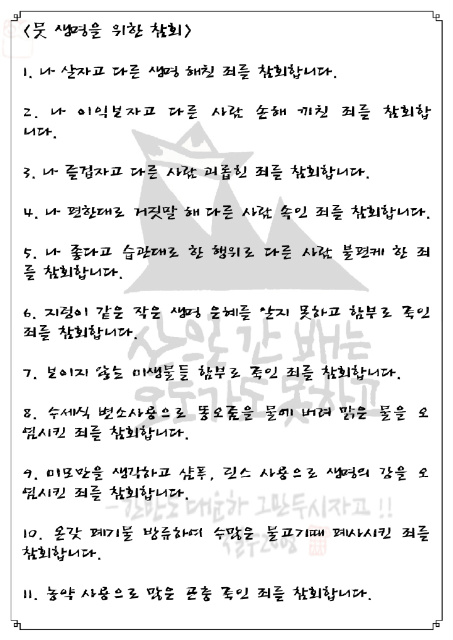 <뭇 생명을 위한 참회>
1. 나 살자고 다른 생명 해친 죄를 참회합니다.
2. 나 이익보자고 다른 사람 손해 끼친 죄를 참회합
니다.
3. 나 즐겁자고 다른 사람 괴롭힌 죄를 참회합니다.
4. 나 편한대로 거짓말 해 다른 사람 속인 죄를 참회합니다.
5. 나 좋다고 습관대로 한 행위로 다른 사람 불편케 한 죄
를 참회합니다.
6. 지렁이 같은 작은 생명 은혜를 알지 못하고 함부로 죽인
죄를 참회합니다.
산으로 간 배는
오도가도 못하고
7. 보이지 않는 미생물들 함부로 죽인 죄를 참회합니다.
8. 수세식 변소사용으로 똥오줌을 물에 버려 맑은 물을 오
염시킨 죄를 참회합니다.
9. 미모만을 생각하고 샴푸, 린스 사용으로 생명의 강을 오
염시킨 죄를 참회합니다.
-한반도 대운하 그만두시자고!!
10. 온갖 폐기물 방류하여 수많은 물고기떼 폐사시킨 죄를
참회합니다.
11. 농약 사용으로 많은 곤충 죽인 죄를 참회합니다.